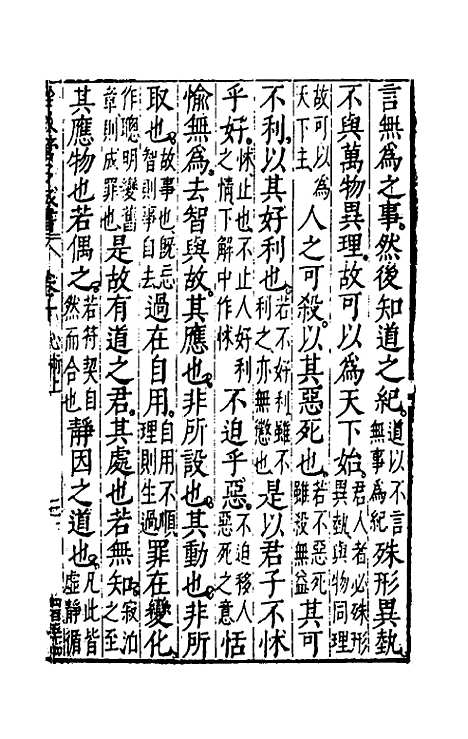 言無爲之事。然後知道之紀。道以不言無事爲紀殊形異埶。
不與萬物異理。故可以爲天下始。君人者必殊形異執與物同理
故可以爲天下主人之可殺。以其惡死也。若不惡死雖殺無益其可
不利。以其好利也。若不好利雖不利之亦無懲也是以君子不怵
乎好。怵止也不止人好利之情下解中作怵不迫乎惡。不迫移人惡死之意恬
愉無爲。去智與故。其應也。非所設也。其動也。非所
取也。故事也既忘智則事自去過在自用。自用不順理則生過罪在變化。
作聰明變舊章則成罪也是故有道之君。其處也若無知。寂泊之至
其應物也若偶之。若符契自然而合也靜因之道也。凡此皆虛靜循